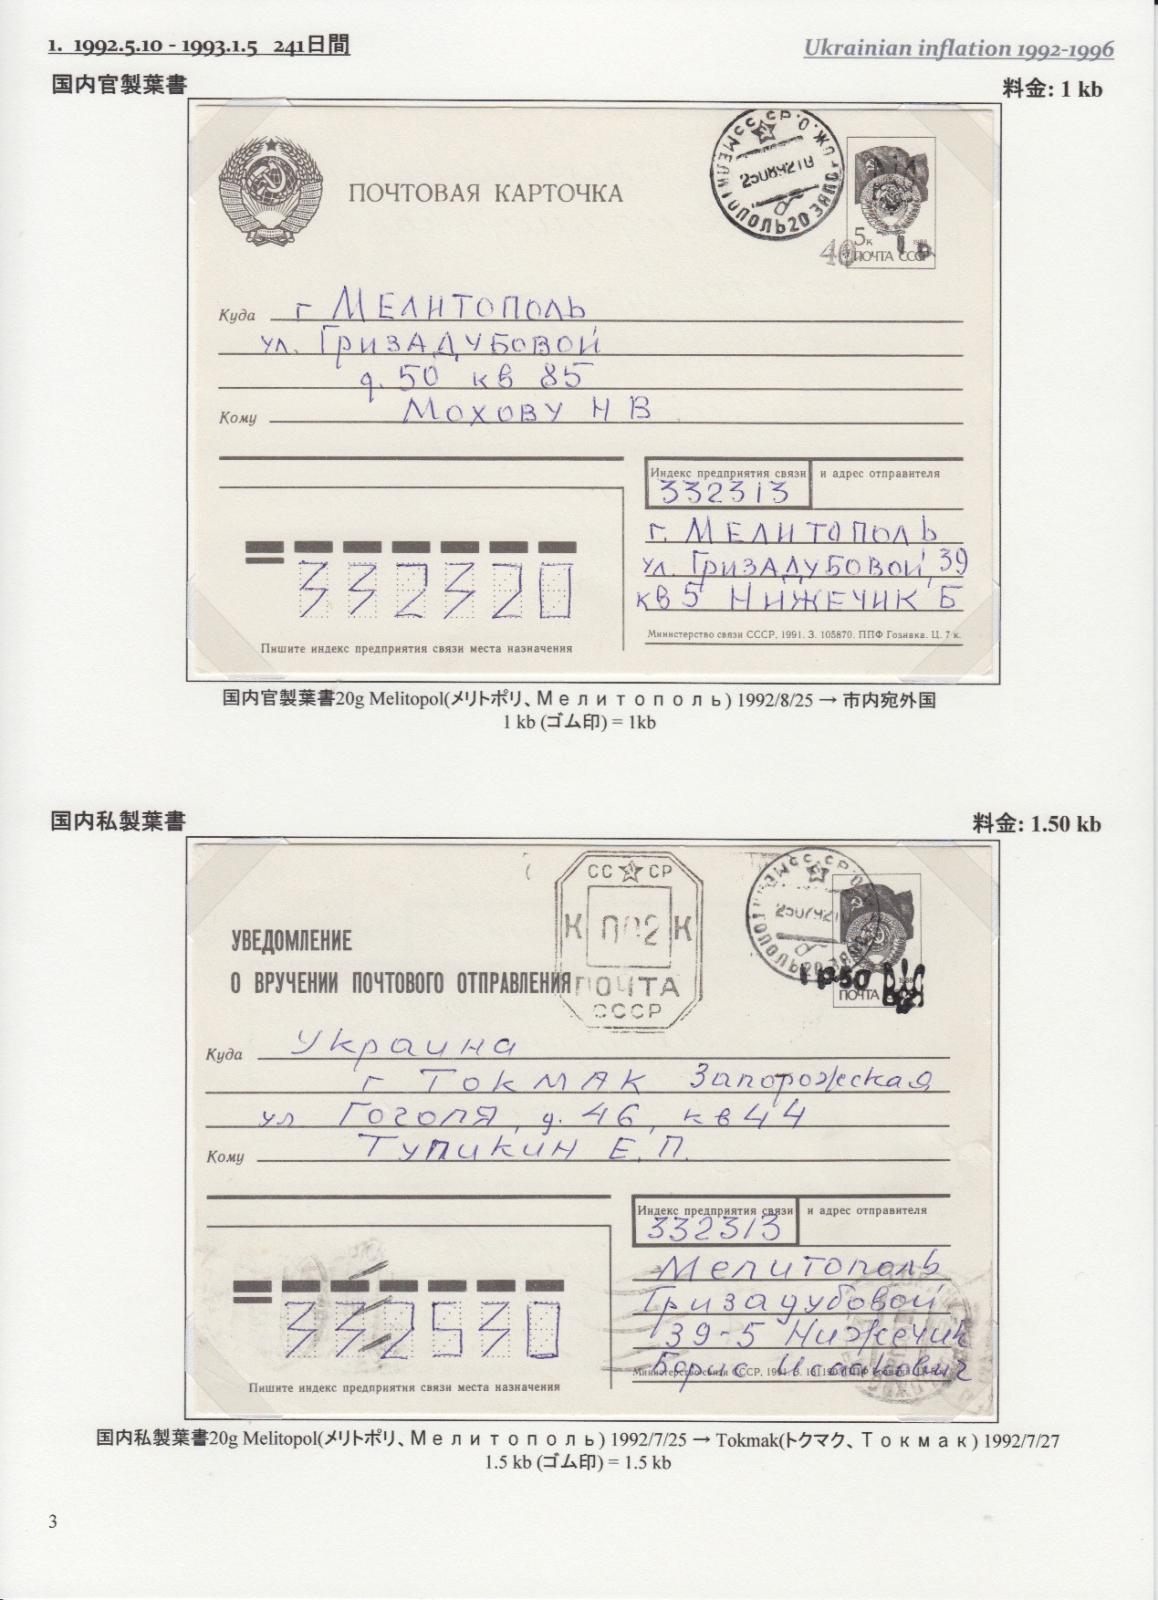 1. 1992.5.10 - 1993.1.5 241日間
Ukrainian inflation 1992-1996
国内官製葉書
料金: 1 kb
ПОЧТОВАЯ КАРТОЧКА
25089210
МЕЛИТОПОЛЬ20
5к 1988
ПОЧТА СССР
40
1р
Куда г МЕЛИТОПОЛЬ
ул. ГРИЗАДУБОВОЙ
д. 50 кв 85
Кому МОХОВУ Н В
Индекс предприятия связи и адрес отправителя
332313
г. МЕЛИТОПОЛЬ
ул. ГРИЗАДУБОВОЙ, 39
кв 5 НИЖЕЧИК Б
332320
Министерство связи СССР, 1991. З. 105870. ППФ Гознака. Ц. 7 к.
Пишите индекс предприятия связи места назначения
国内官製葉書20g Melitopol(メリトポリ、Мелитополь) 1992/8/25 → 市内宛外国
1 kb (ゴム印) = 1kb
国内私製葉書
料金: 1.50 kb
СС СР
К П02 К
ПОЧТА
СССР
УВЕДОМЛЕНИЕ
О ВРУЧЕНИИ ПОЧТОВОГО ОТПРАВЛЕНИЯ
1р50
ПОЧТА
Куда Украина
г ТОКМАК Запорожская
ул ГОГОЛЯ, д. 46, кв 44
Кому ТУПИКИН Е.П.
Индекс предприятия связи и адрес отправителя
332313
Мелитополь
Гризадубовой
39-5 Нижечик
Борис Исаакович
332530
Министерство связи СССР, 1991. З.
Пишите индекс предприятия связи места назначения
国内私製葉書20g Melitopol(メリトポリ、Мелитополь) 1992/7/25 → Tokmak(トクマク、Токмак) 1992/7/27
1.5 kb (ゴム印) = 1.5 kb
3